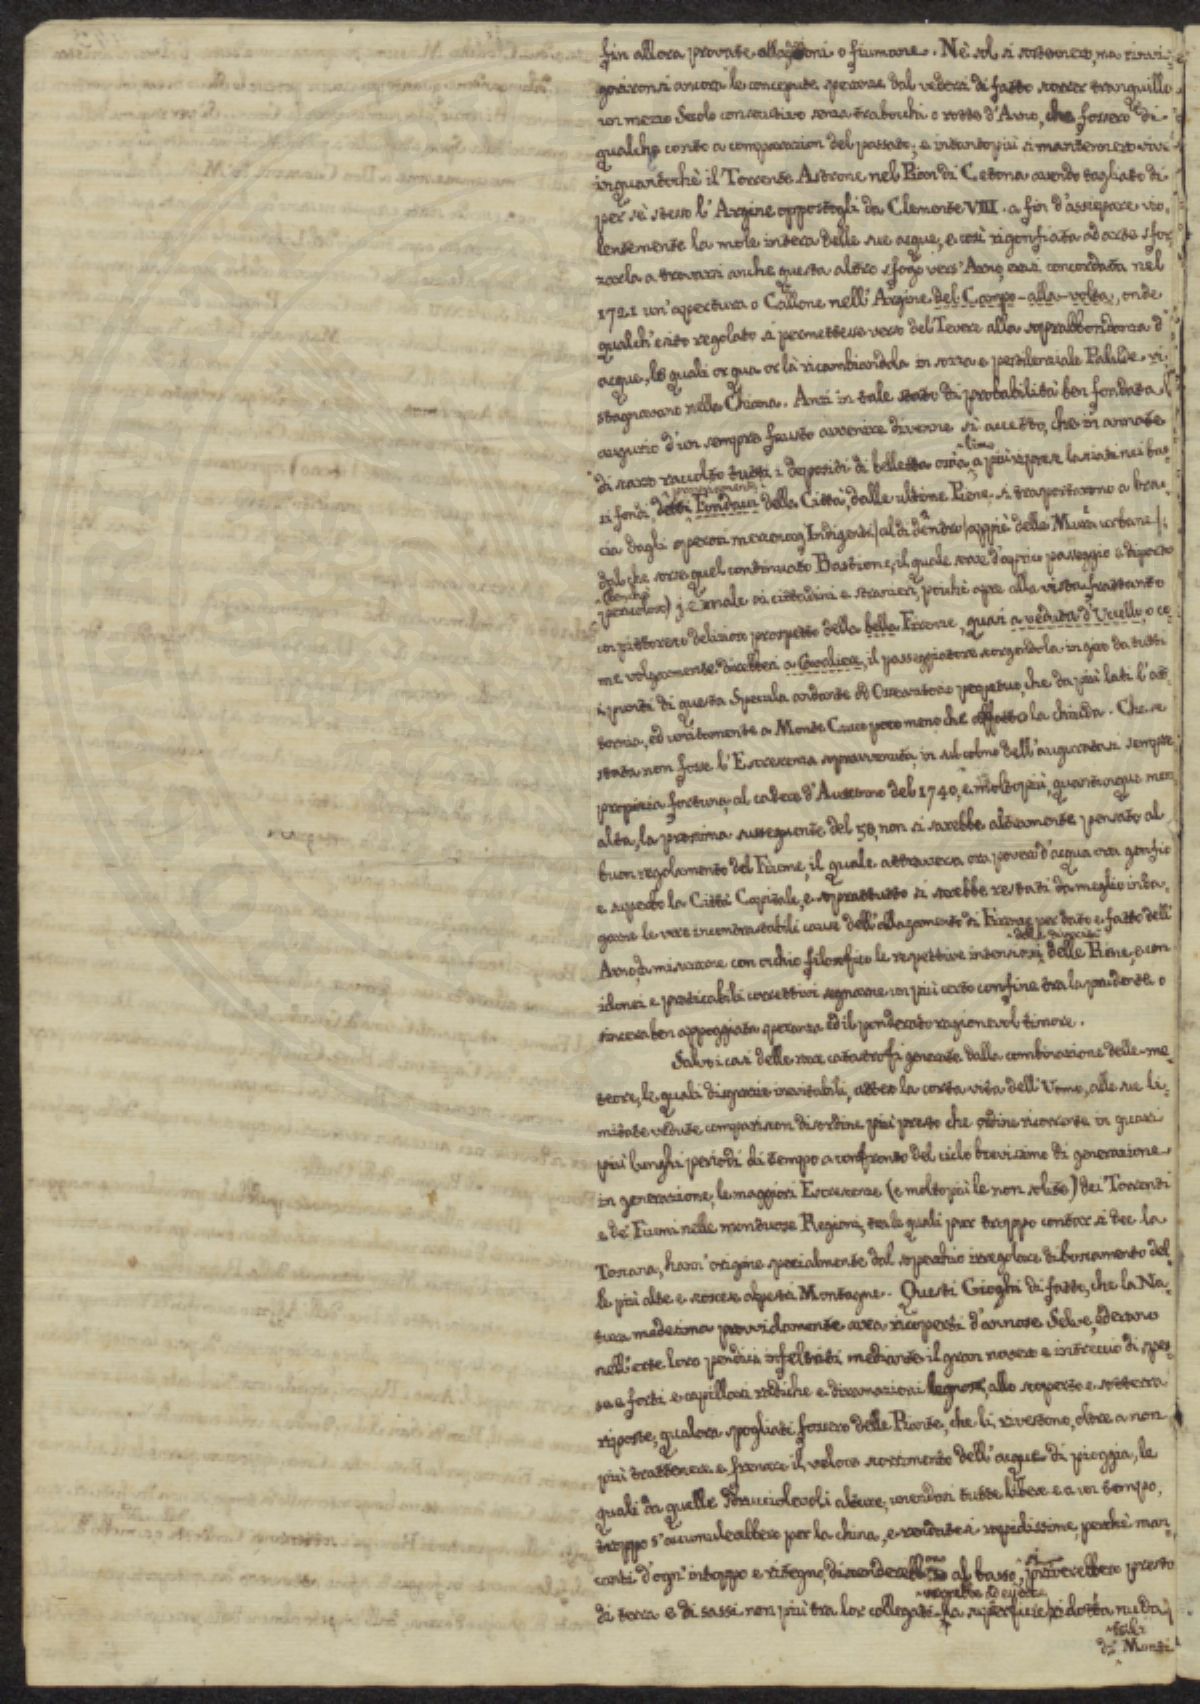 fin allora provate alluvioni o fiumane. Nè sol si sostennero, ma rinvi-
gorironsi ancora le concepute speranze dal vedersi di fatto scorrer tranquillo
un mezzo Secolo consecutivo senza trabocchi o rotte d'Arno, che fossero di
qualche conto a comparazion del passato; e intanto più si mantennero vivi
inquantochè il Torrente Astrone nel Pian di Cetona avendo tagliato di
per sè stesso l'Argine oppostogli da Clemente VIII. a fin d'assiepare vio-
lentemente la mole intera delle sue acque, e così rigonfiata ad arte sfor-
zarla a trovarsi anche questa altro sfogo vers' Arno, erasi concordata nel
1721 un'apertura o Callone nell'Argine del Campo-alla-volta, onde
qualch'esito regolato si permettesse verso del Tevere alla soprabbondanza d'
acque, le quali or qua or là ricambiandola in sozza e pestilenziale Palude ri-
stagnavano nella Chiana. Anzi in tale stato di probabilità ben fondata l'
augurio d'un sempre fausto avvenire divenne sì accetto, che in annate
di scarso raccolto tutti i depositi di belletta ossia lima a più riprese lasciati nei bas-
si fondi, detti propriamente Fondacci della Città, dalle ultime Piene si trasportarono a brac-
cia dagli operosi mercenarj Indigenti al di dentro appiè delle Mura urbane;
dal che sorse quel continuato Bastione, il quale serve d'aprico passeggio e diporto
(benchè
pericoloso) jemale ai cittadini e stranieri, poichè apre alla vista frattanto
un pittoresco delizioso prospetto della bella Firenze, quasi a veduta d'Uccello, o co-
me volgarmente direbbesi a Cavaliere, il passeggiatore scorgendola in giro da tutti
i punti di questa Specula andante od Osservatorio perpetuo, che da più lati l'at-
tornia, ed unitamente a Monte Cuccoli poco meno che affatto la chiude. Che se
stata non fosse l'Escrescenza sopravvenuta in sul colmo dell'auguratasi sempre
propizia fortuna, al cadere d'Autunno del 1740, e molto più, quantunque men
alta, la prossima susseguente del 58, non si sarebbe altramente pensato al
buon regolamento del Fiume, il quale attraversa ora povero d'acqua ora gonfio
e superbo la Città Capitale, e soprattutto si sarebbe restati da meglio inda-
garne le vere incontrastabili cause dell'allagamento di Firenze per dato e fatto dell'
Arno, da misurarne con occhio filosofico le respettive intensioni delle diverse Piene, e con
idonei e praticabili correttivi segnarne un più certo confine tra la prudente o
sincera ben appoggiata speranza ed il ponderato ragionevol timore.
Salvo i casi delle rare catastrofi generate dalla combinazione delle me-
teore, le quali disgrazie inevitabili, atteso la corta vita dell'Uomo, alle sue li-
mitate vedute compariscon disordine più presto che ordine ricorrente in quasi
più lunghi periodi di tempo a confronto del ciclo brevissimo di generazione
in generazione, le maggiori Escrescenze (e molto più le non solite) dei Torrenti
e de' Fiumi nelle montuose Regioni, tra le quali pur troppo contar si dee la
Toscana, hann'origine specialmente dal soperchio irregolare diboscamento del-
le più alte e scoscese alpestri Montagne. Questi Gioghi di fatto, che la Na-
tura medesima provvidamente avea ricoperti d'annose Selve, ed erano
nell'erte loro pendici infeltriti mediante il gran novero e intreccio di spes-
se e forti e capillari radiche e diramazioni legnose, allo scoperto e sotterra
riposte, qualora spogliati fossero delle Piante, che li rivestono, oltre a non
più trattenere e frenare il veloce scorrimento dell'acque di pioggia, le
quali da quelle sdrucciolevoli alture, unendosi tutte libere e a un tempo,
troppo s'accumulerebbero per la china, e rendutesi rapidissime, perchè man-
canti d'ogni intoppo e ritegno, discenderebbono al basso, priverebbero presto
di terra e di sassi non più tra lor collegati la superficie ridotta nuda
de' Monti